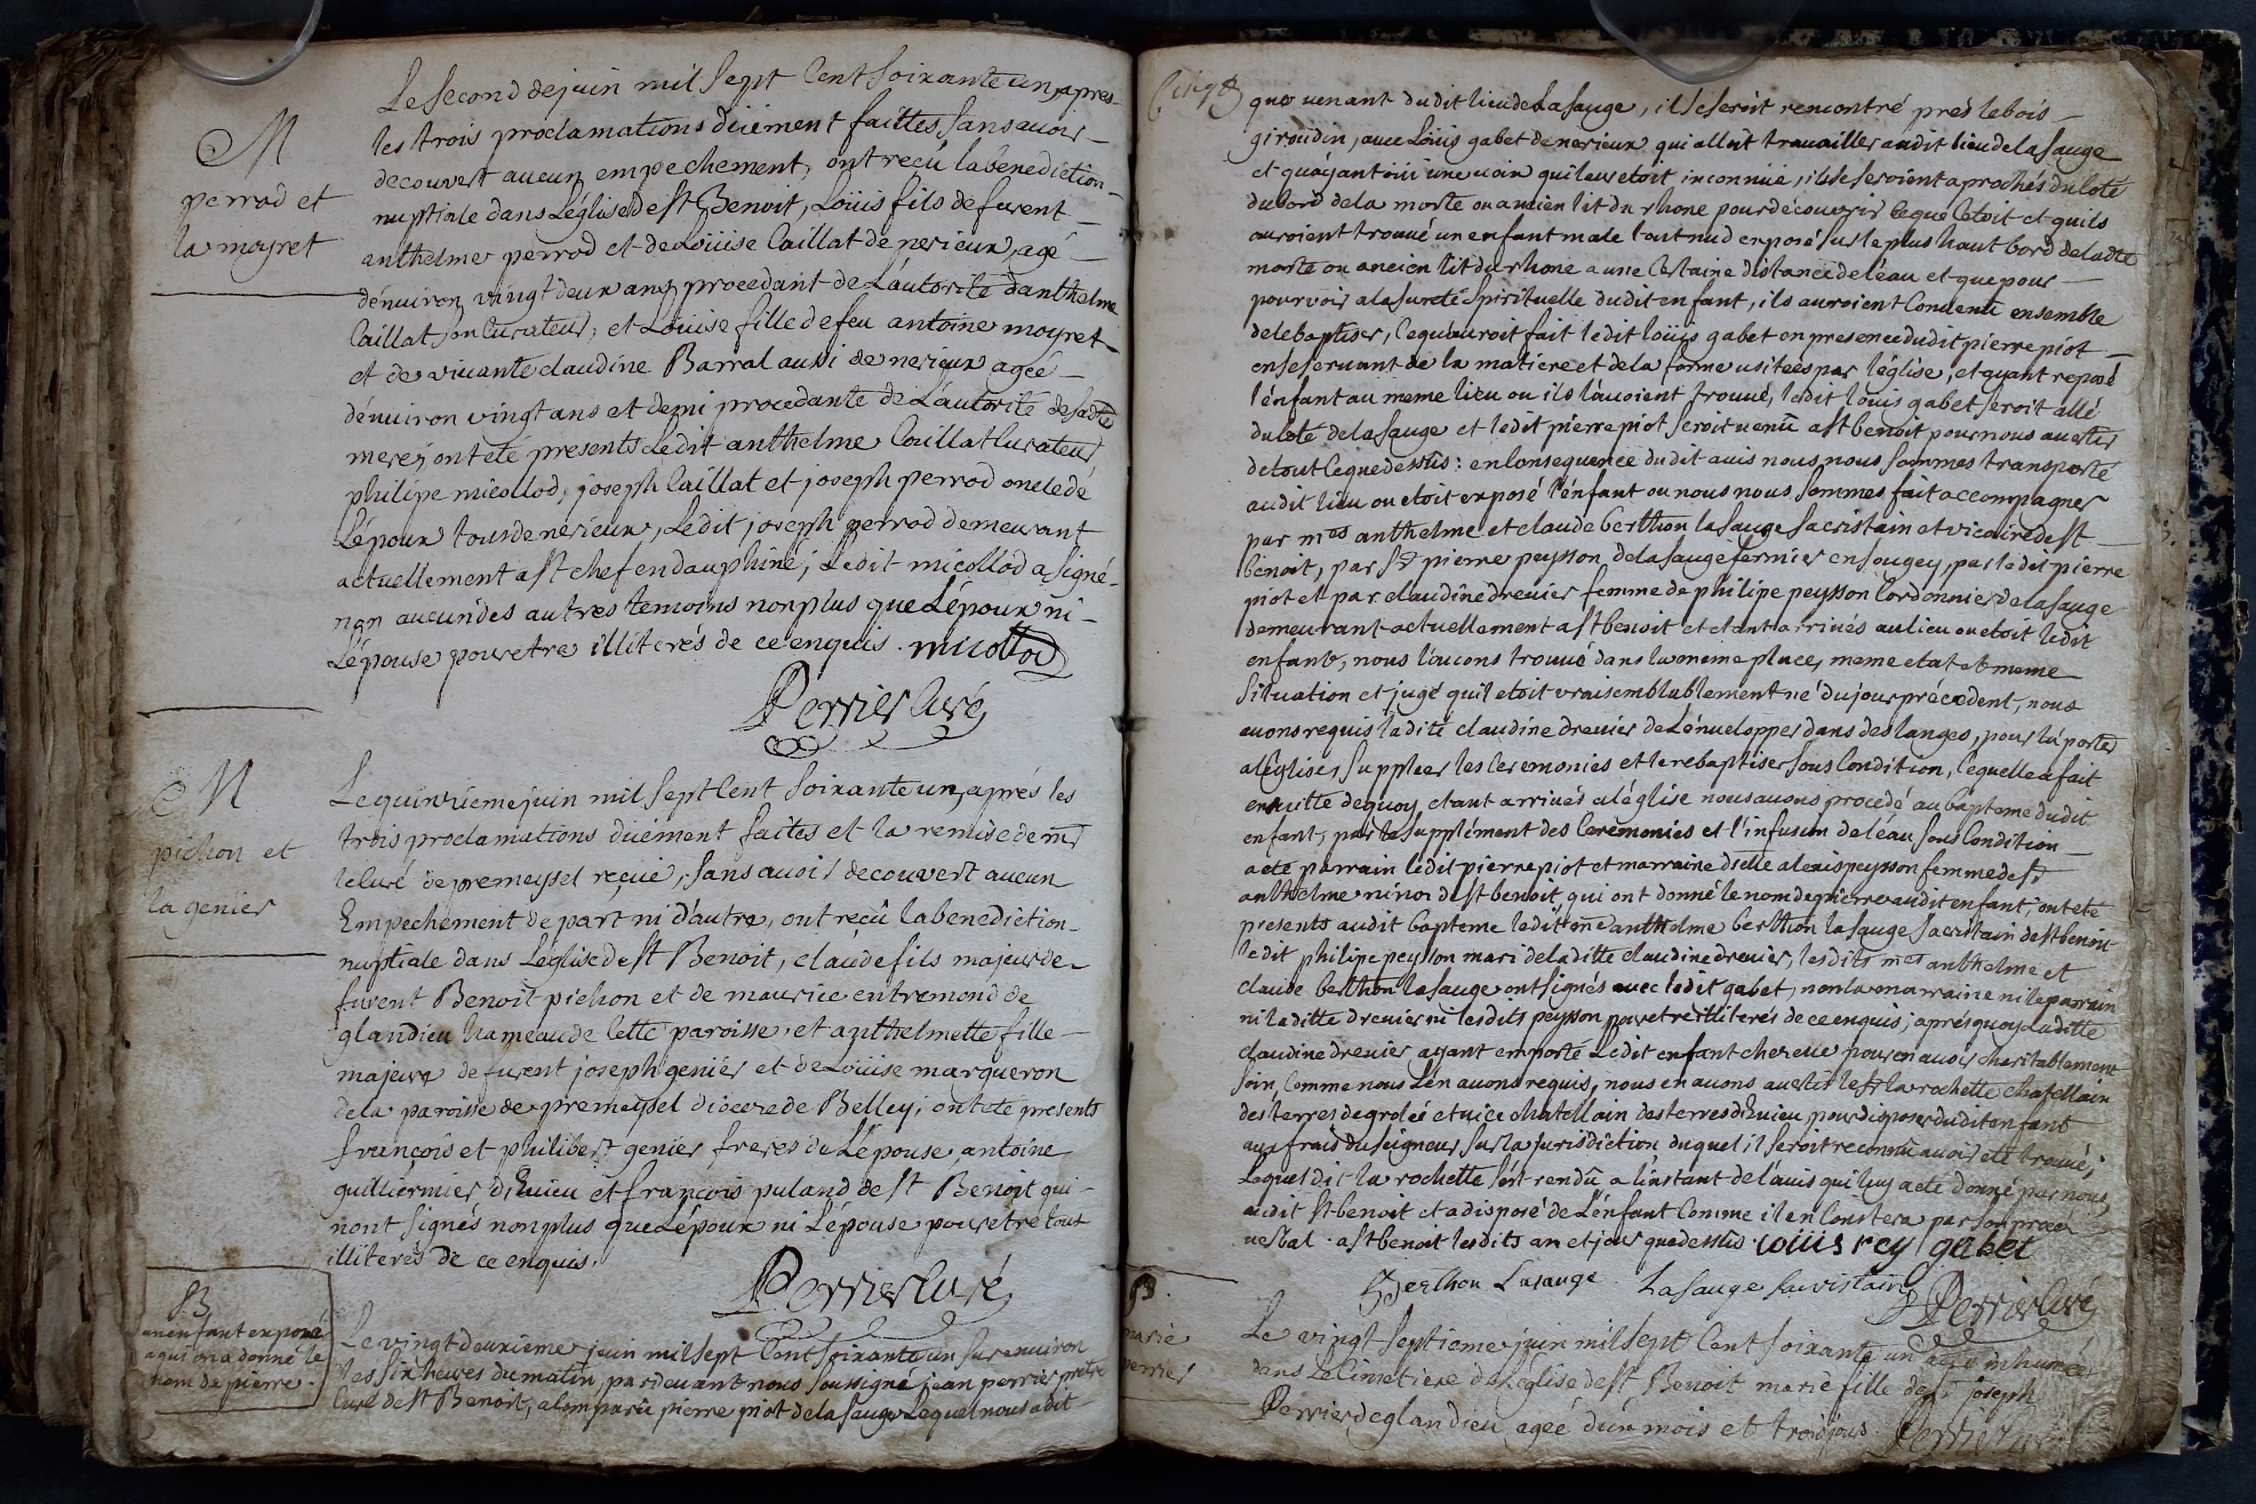 M
perrod et
la moyret
Le second de juin mil sept Cent soixante un, apres
les trois proclamations düement faittes, sans avoir
decouvert aucun empechement, ont reçû la benediction
nuptiale dans L'église de st Benoit, Loüis fils de furent
anthelme perrod et de Loüise Caillat de nerieux, agé
d'environ vingt deux ans, procedant de L'autorité d'anthelme
Caillat son Curateur, et Loüise fille de feu antoine moyret
et de vivante claudine Barral aussi de nerieux ageé
d'environ vingt ans et demi procedante de L'autorité de sadte
mere, ont eté presents Ledit anthelme Caillat Curateur
philipe micollod, joseph Caillat et joseph perrod oncle de
L'époux tous de nerieux, Ledit joseph perrod demeurant
actuellement a st chef en dauphiné, Ledit micollod a signé
non aucun des autres temoins non plus que L'époux ni
L'épouse pour etre illiterés de ce enquis. micollod
Perrier Curé
M
pichon et
la genier
Le quinzieme juin mil sept Cent soixante un, aprés les
trois proclamations düement faites et la remise de mr
le Curé de premeysel reçüe, sans avoir decouvert aucun
Empechement de part ni d'autre, ont reçû la benediction
nuptiale dans L'église de st Benoit, claude fils majeur de
furent Benoit pichon et de maurice entremond de
glandieu hameau de Cette paroisse, et anthelmette fille
majeure de furent joseph genier et de Loüise marqueron
de la paroisse de premeysel diocese de Belley; ont eté presents
françois et philibert genier freres de L'épouse, antoine
guilliermier d'Evieu et françois puland de st Benoit qui
n'ont signés non plus que L'époux ni L'épouse pour etre tous
illiterés de ce enquis.
Perrier Curé
B
un enfant exposé
a qui on a donné le
nom de pierre.
Le vingt deuxieme juin mil sept Cent soixante un sur environ
les six heures du matin, par devant nous soussigné jean perrier pretre
Curé de st Benoit, a Comparû pierre piot de la sauge Lequel nous a dit
que venant dudit lieu de La sauge, il se seroit rencontré pres le bois
giroudin, avec Loüis gabet de nerieux qui alloit travailler audit lieu de la sauge
et qu'ayant oüi une voix qui leur etoit inconnüe, ils se seroient aprochés du Coté
du bord de la morte ou ancien lit du rhone pour découvrir Ce que C'etoit et quils
auroient trouvé un enfant male tout nud exposé sur le plus haut bord de ladte
morte ou ancien lit du rhone a une Certaine distance de l'eau et que pour
pourvoir a la sureté spirituelle dudit enfant, ils auroient Convenû ensemble
de le baptiser, Ce qu'auroit fait ledit loüis gabet en presence dudit pierre piot
en se servant de la matiere et de la forme usitees par l'église, et ayant reposé
l'énfant au meme lieu ou ils l'avoient trouvé, ledit loüis gabet seroit allé
du Coté de la sauge et ledit pierre piot seroit venû a st benoit pour nous avertir
de tout Ce que dessus: en Consequence dudit avis nous nous sommes transporté
audit lieu ou etoit exposé l'énfant ou nous nous sommes fait accompagner
par mes anthelme et claude berthon lasauge sacristain et vicaire de st
benoit, par sr pierre peysson de la sauge fermier en sougey, par ledit pierre
piot et par claudine drevier femme de philipe peysson Cordonnier de la sauge
demeurant actuellement a st benoit et etant arrivés au lieu ou etoit ledit
enfant, nous l'avons trouvé dans la meme place, meme etat et meme
situation et jugé qu'il etoit vraisemblablement né du jour précedent, nous
avons requis ladite claudine drevier de L'énvelopper dans des langes, pour l'aporter
a l'église, suppleer les Ceremonies et le rebaptiser sous Condition, Ce quelle a fait
ensuitte de quoy etant arrivés a l'église nous avons procedé au bapteme dudit
enfant, par le supplément des Ceremonies et l'infusion de l'éau sous Condition
a eté parrain ledit pierre piot et marraine dselle alexis peysson femme de sr
anthelme ninoz de st benoit, qui ont donné le nom de pierre audit enfant; ont eté
presents audit bapteme ledit me anthelme berthon lasauge sacristain de st benoit
ledit philipe peysson mari de laditte claudine drevier, lesdits mes anthelme et
claude berthon lasauge ont signés avec ledit gabet, non la marraine ni le parrain
ni laditte drevier ni lesdits peysson pour etre illiterés de ce enquis; aprés quoy Laditte
claudine drevier ayant emporté Ledit enfant chez elle pour en avoir charitablement
soin, Comme nous L'en avons requis, nous en avons averti le sr larochette chatellain
des terres de groleé et vice chatellain des terres d'Evieu, pour disposer dudit enfant
aux frais du seigneur sur la jurisdiction duquel il seroit reconnû avoir eté trouvé;
Lequel dit larochette s'ést rendû a linstant de l'avis qui luy a eté donné par nous,
audit st benoit et a disposé de L'énfant Comme il en Constera par son procé
verbal. a st benoit lesdits an et jour que dessus. loüis rey gabet
Berthon Lasauge. Lasauge sacristain
Perrier Curé
S.
marie
perrier
Le vingt septieme juin mil sept Cent soixante un a eté inhumeé
dans Le Cimetiere de L'église de st Benoit marie fille de joseph
Perrier de glandieu ageé d'un mois et trois jours. Perrier Curé